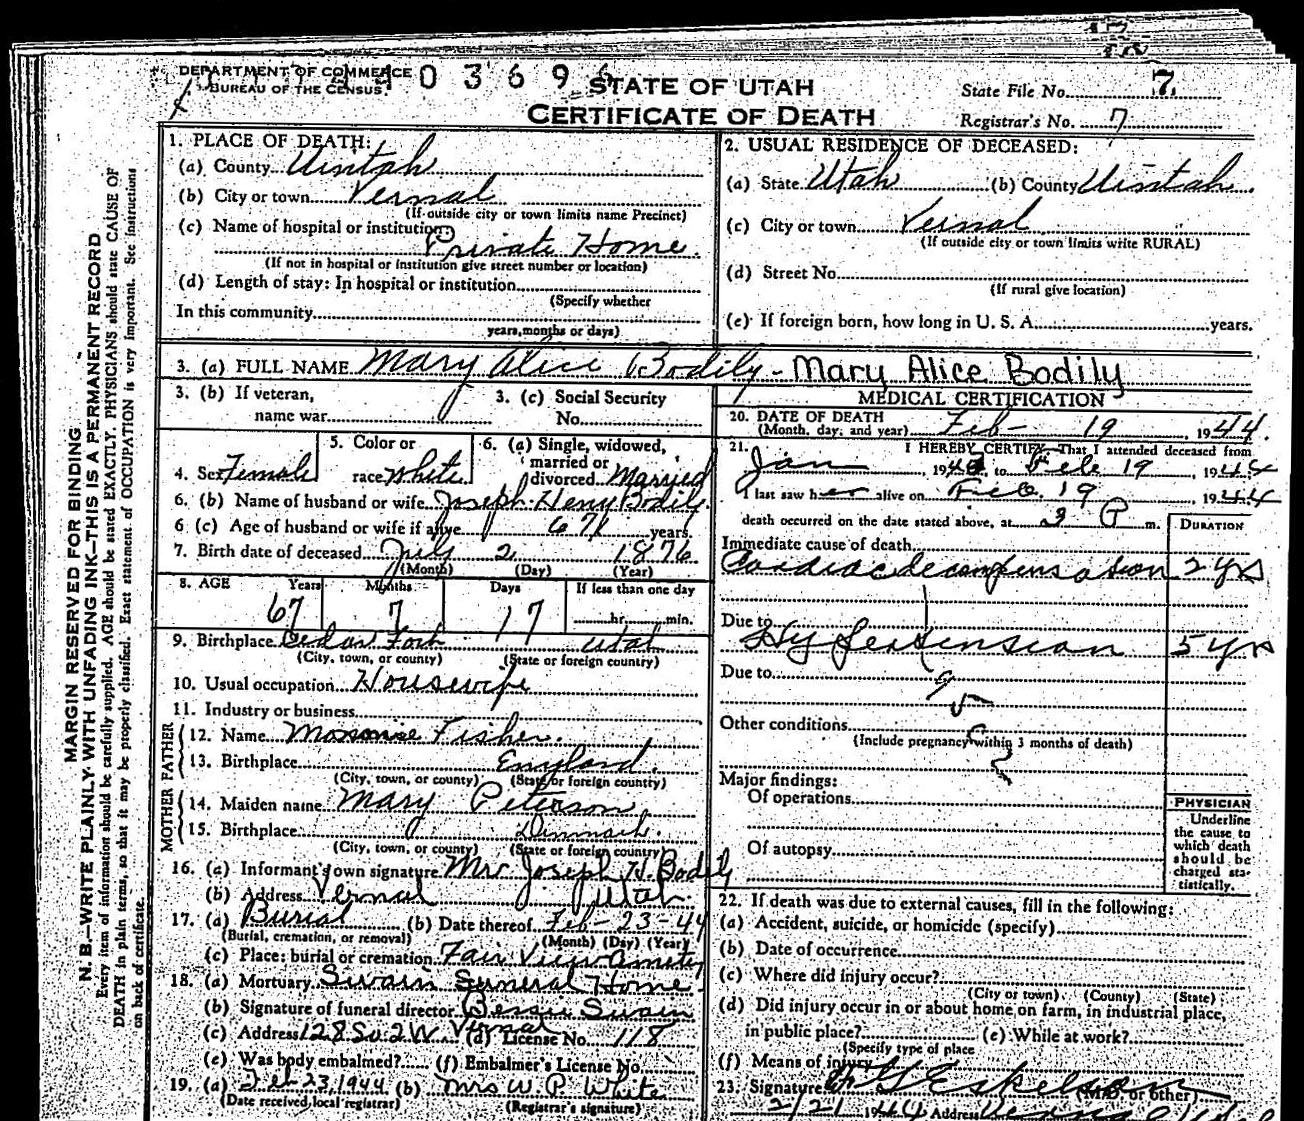 DEPARTMENT OF COMMERCE
BUREAU OF THE CENSUS
0 3 6 9
STATE OF UTAH
CERTIFICATE OF DEATH
State File No. 7
Registrar's No. 7
MARGIN RESERVED FOR BINDING
N. B.—WRITE PLAINLY WITH UNFADING INK—THIS IS A PERMANENT RECORD
Every item of information should be carefully supplied. AGE should be stated EXACTLY. PHYSICIANS should state CAUSE OF
DEATH in plain terms, so that it may be properly classified. Exact statement of OCCUPATION is very important. See instructions
on back of certificate.
1. PLACE OF DEATH:
(a) County Uintah
(b) City or town Vernal
(If outside city or town limits name Precinct)
(c) Name of hospital or institution:
Private Home
(If not in hospital or institution give street number or location)
(d) Length of stay: In hospital or institution
(Specify whether
In this community
years, months or days)
2. USUAL RESIDENCE OF DECEASED:
(a) State Utah (b) County Uintah
(c) City or town Vernal
(If outside city or town limits write RURAL)
(d) Street No.
(If rural give location)
(e) If foreign born, how long in U. S. A. years.
3. (a) FULL NAME Mary Alice Bodily - Mary Alice Bodily
3. (b) If veteran,
name war
3. (c) Social Security
No.
4. Sex Female
5. Color or
race White
6. (a) Single, widowed,
married or
divorced Married
6. (b) Name of husband or wife Joseph Henry Bodily
6 (c) Age of husband or wife if alive 67 years.
7. Birth date of deceased 2 1876
(Month) (Day) (Year)
8. AGE Years Months Days If less than one day
67 7 17 hr. min.
9. Birthplace Cedar Fort Utah
(City, town, or county) (State or foreign country)
10. Usual occupation Housewife
11. Industry or business
FATHER
12. Name Fisher.
13. Birthplace England.
(City, town, or county) (State or foreign country)
MOTHER
14. Maiden name Mary Peterson
15. Birthplace Denmark.
(City, town, or county) (State or foreign country)
16. (a) Informant's own signature Mr Joseph H. Bodily
(b) Address Vernal Utah
17. (a) Burial (b) Date thereof Feb-23-44
(Burial, cremation, or removal) (Month) (Day) (Year)
(c) Place: burial or cremation Fair View
18. (a) Mortuary Swain Funeral Home
(b) Signature of funeral director Bessie Swain
(c) Address 128 So 2 W. Vernal (d) License No. 118
(e) Was body embalmed? (f) Embalmer's License No.
19. (a) Feb 23 1944 (b) Mrs W. P. White
(Date received local registrar) (Registrar's signature)
MEDICAL CERTIFICATION
20. DATE OF DEATH
(Month, day, and year) Feb- 19, 1944.
21. I HEREBY CERTIFY, That I attended deceased from
Jan 19 to Feb 19, 19
I last saw her alive on Feb. 19, 1944
death occurred on the date stated above, at 3 P m.
DURATION
Immediate cause of death
Cardiac decompensation 2 yrs
Due to
Hypertension 5 yrs
Due to
Other conditions
(Include pregnancy within 3 months of death)
Major findings:
Of operations
Of autopsy
PHYSICIAN
Underline
the cause to
which death
should be
charged sta-
tistically.
22. If death was due to external causes, fill in the following:
(a) Accident, suicide, or homicide (specify)
(b) Date of occurrence
(c) Where did injury occur?
(City or town) (County) (State)
(d) Did injury occur in or about home, on farm, in industrial place,
in public place? (e) While at work?
(Specify type of place
(f) Means of injury
23. Signature Eskelson (M.D. or other)
2/21 1944 Address